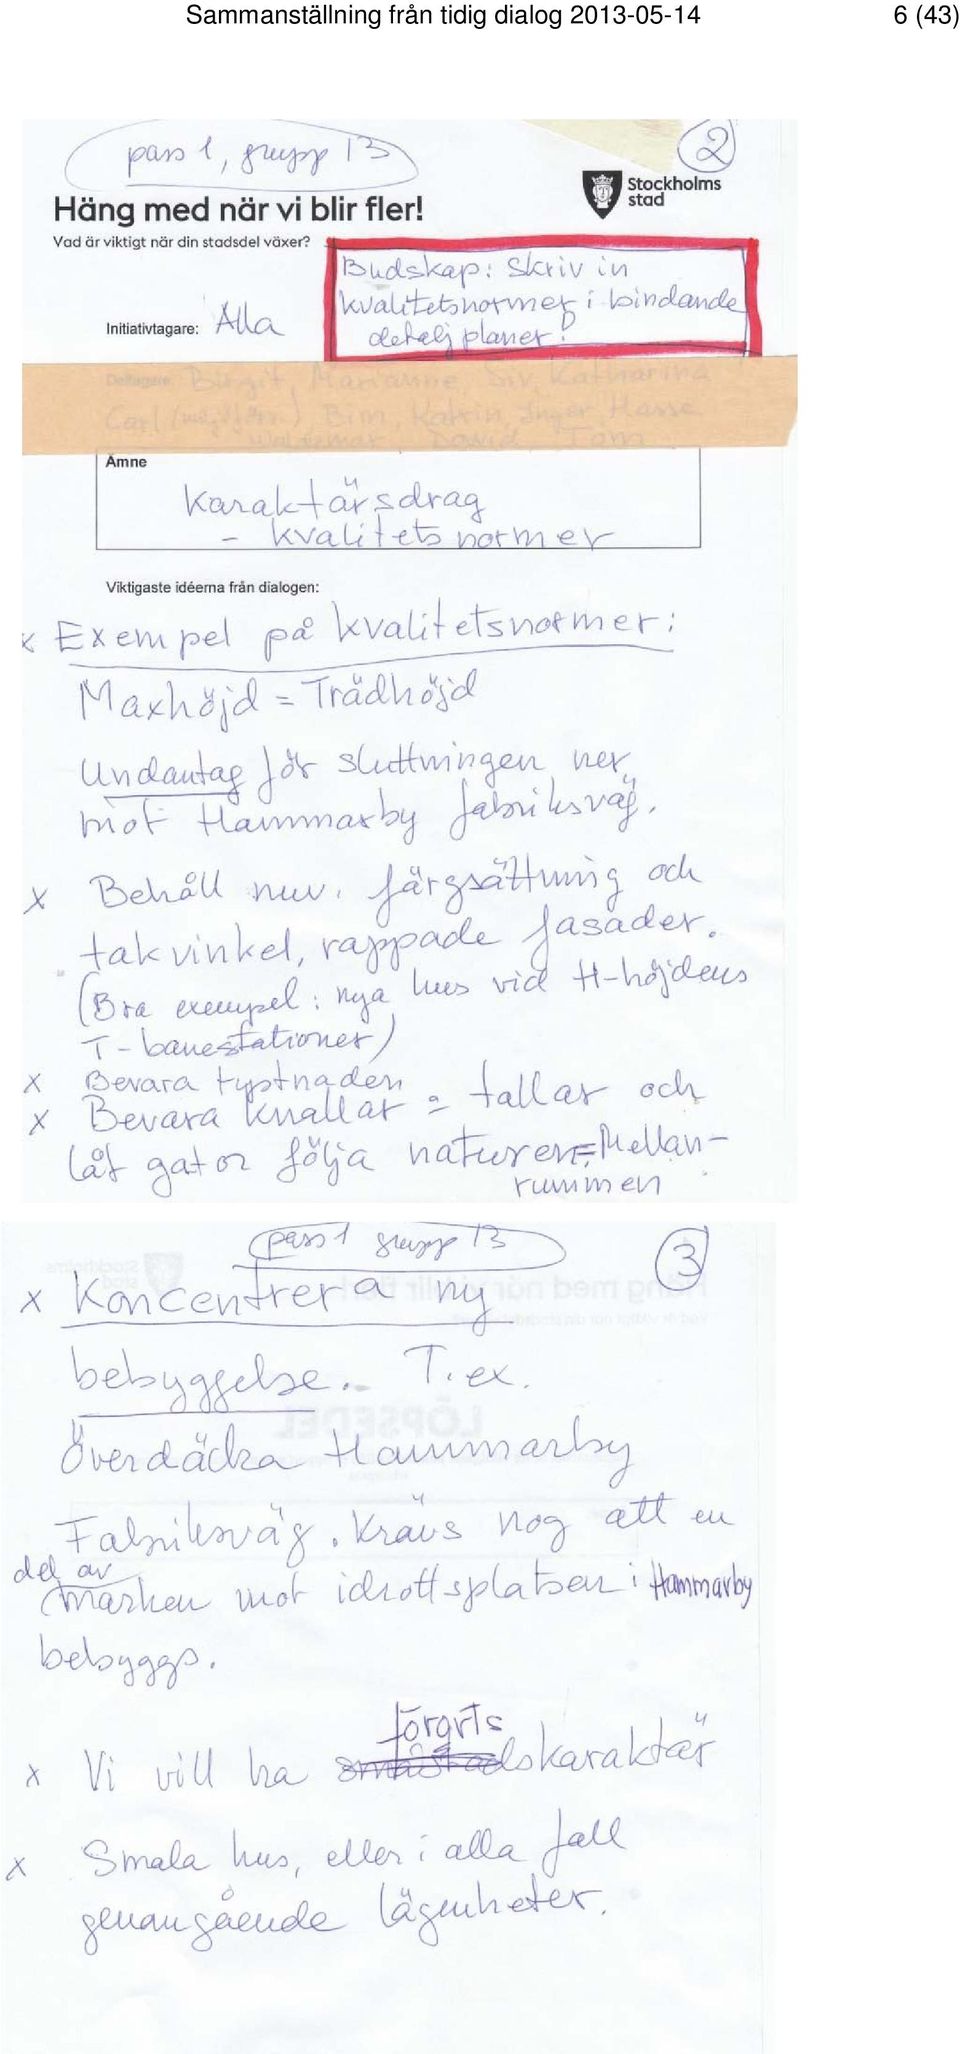 Sammanställning från tidig dialog 2013-05-14 6 (43)
pass 1, grupp 13 2
Stockholms
stad
Häng med när vi blir fler!
Vad är viktigt när din stadsdel växer?
Budskap: Skriv in
kvalitetsnormer i bindande
detaljplaner!
Initiativtagare: Alla
Deltagare: Birgit, Marianne, Siv, Katharina
Carl Bim, Katrin, Inger, Hasse
Waldemar David Tom
Ämne
Karaktärsdrag
- kvalitetsnormer
Viktigaste idéerna från dialogen:
x Exempel på kvalitetsnormer:
Maxhöjd = Trädhöjd
Undantag för sluttningen ner
mot Hammarby fabriksväg.
x Behåll nuv. färgsättning och
takvinkel, rappade fasader.
(Bra exempel: nya hus vid H-höjdens
T-banestationer)
x Bevara tystnaden
x Bevara knallar = tallar och
låt gator följa naturen = Mellan-
rummen
pass 1 grupp 13 3
x Koncentrera ny
bebyggelse. T.ex.
Överdäcka Hammarby
Fabriksväg. Krävs nog att en
del av
marken mot idrottsplatsen i Hammarby
bebyggs.
förorts
x Vi vill ha småstadskaraktär
x Smala hus, eller i alla fall
genomgående lägenheter.